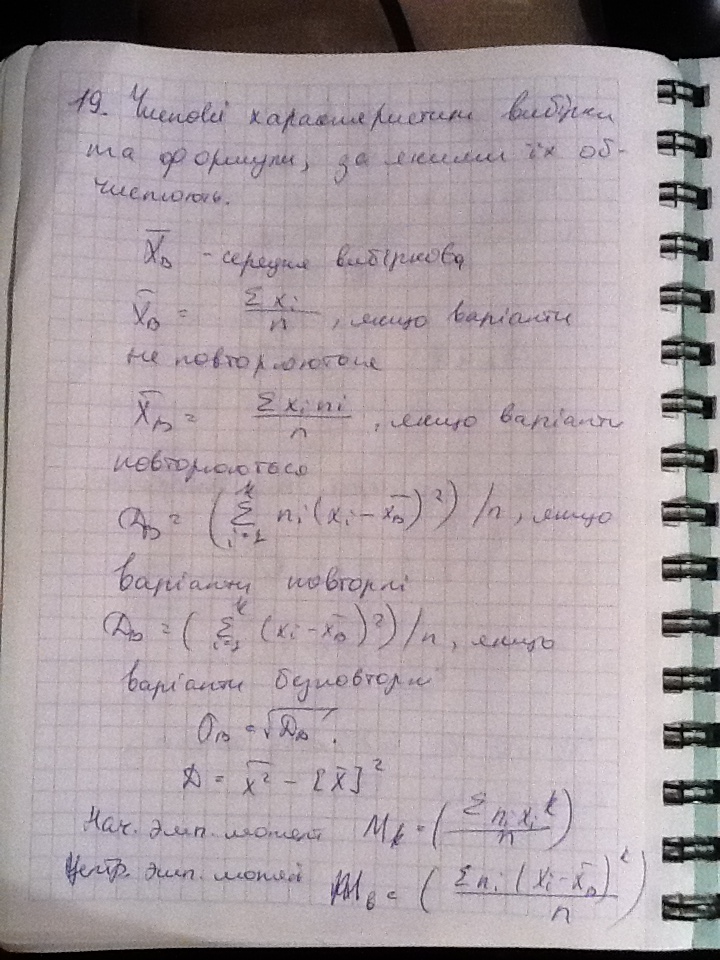 19. Числові характеристики вибірки
та формули, за якими їх об-
числюють.
X̅в - середня вибіркова
x̅в = Σxi / n, якщо варіанти
не повторюються
x̅в = Σxini / n, якщо варіанти
повторюються
Dв = (Σ(i=1, k) ni(xi - x̅в)²) / n, якщо
варіанти повторні
Dв = (Σ(i=1, k) (xi - x̅в)²) / n, якщо
варіанти
σв = √Dв.
D = x̅² - [x̅]²
Поч. емп. момент Mk = (Σ ni xi^k / n)
Центр. емп. момент = (Σ ni (xi - x̅в) / n)